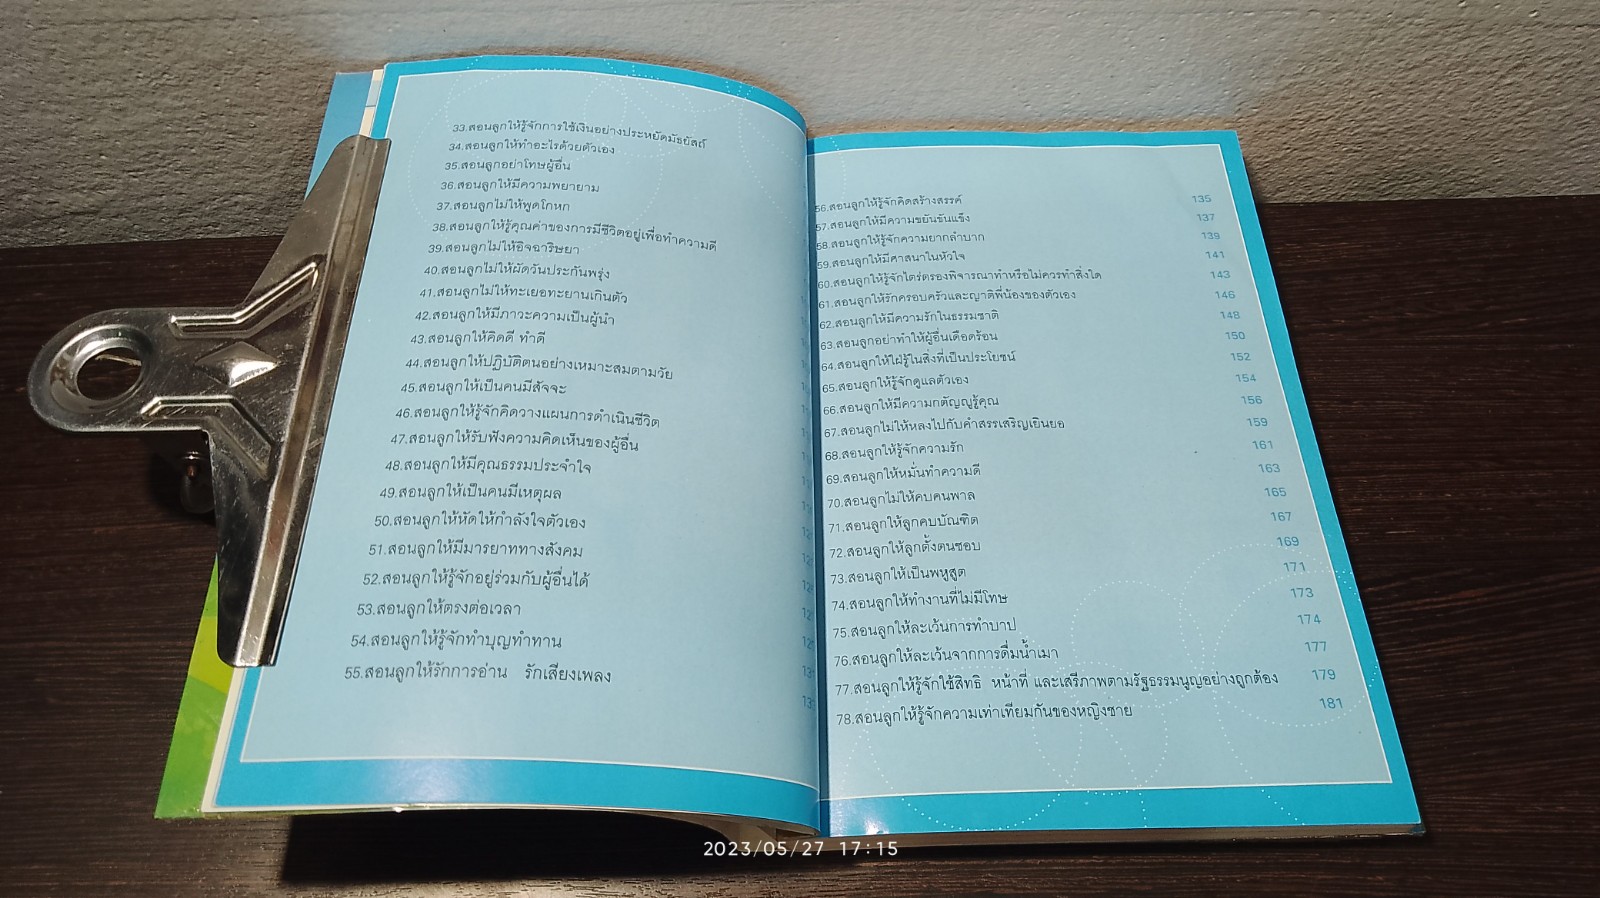 33.สอนลูกให้รู้จักการใช้เงินอย่างประหยัดมัธยัสถ์
34.สอนลูกให้ทำอะไรด้วยตัวเอง
35.สอนลูกอย่าโทษผู้อื่น
36.สอนลูกให้มีความพยายาม
37.สอนลูกไม่ให้พูดโกหก
38.สอนลูกให้รู้คุณค่าของการมีชีวิตอยู่เพื่อทำความดี
39.สอนลูกไม่ให้อิจฉาริษยา
40.สอนลูกไม่ให้ผัดวันประกันพรุ่ง
41.สอนลูกไม่ให้ทะเยอทะยานเกินตัว
42.สอนลูกให้มีภาวะความเป็นผู้นำ
43.สอนลูกให้คิดดี ทำดี
44.สอนลูกให้ปฏิบัติตนอย่างเหมาะสมตามวัย
45.สอนลูกให้เป็นคนมีสัจจะ
46.สอนลูกให้รู้จักคิดวางแผนการดำเนินชีวิต
47.สอนลูกให้รับฟังความคิดเห็นของผู้อื่น
48.สอนลูกให้มีคุณธรรมประจำใจ
49.สอนลูกให้เป็นคนมีเหตุผล
50.สอนลูกให้หัดให้กำลังใจตัวเอง
51.สอนลูกให้มีมารยาททางสังคม
52.สอนลูกให้รู้จักอยู่ร่วมกับผู้อื่นได้
53.สอนลูกให้ตรงต่อเวลา
54.สอนลูกให้รู้จักทำบุญทำทาน
55.สอนลูกให้รักการอ่าน รักเสียงเพลง
56.สอนลูกให้รู้จักคิดสร้างสรรค์ 135
57.สอนลูกให้มีความขยันขันแข็ง 137
58.สอนลูกให้รู้จักความยากลำบาก 139
59.สอนลูกให้มีศาสนาในหัวใจ 141
60.สอนลูกให้รู้จักไตร่ตรองพิจารณาทำหรือไม่ควรทำสิ่งใด 143
61.สอนลูกให้รักครอบครัวและญาติพี่น้องของตัวเอง 146
62.สอนลูกให้มีความรักในธรรมชาติ 148
63.สอนลูกอย่าทำให้ผู้อื่นเดือดร้อน 150
64.สอนลูกให้ใฝ่รู้ในสิ่งที่เป็นประโยชน์ 152
65.สอนลูกให้รู้จักดูแลตัวเอง 154
66.สอนลูกให้มีความกตัญญูรู้คุณ 156
67.สอนลูกไม่ให้หลงไปกับคำสรรเสริญเยินยอ 159
68.สอนลูกให้รู้จักความรัก 161
69.สอนลูกให้หมั่นทำความดี 163
70.สอนลูกไม่ให้คบคนพาล 165
71.สอนลูกให้ลูกคบบัณฑิต 167
72.สอนลูกให้ลูกตั้งตนชอบ 169
73.สอนลูกให้เป็นพหูสูต 171
74.สอนลูกให้ทำงานที่ไม่มีโทษ 173
75.สอนลูกให้ละเว้นการทำบาป 174
76.สอนลูกให้ละเว้นจากการดื่มน้ำเมา 177
77.สอนลูกให้รู้จักใช้สิทธิ หน้าที่ และเสรีภาพตามรัฐธรรมนูญอย่างถูกต้อง 179
78.สอนลูกให้รู้จักความเท่าเทียมกันของหญิงชาย 181
2023/05/27 17:15